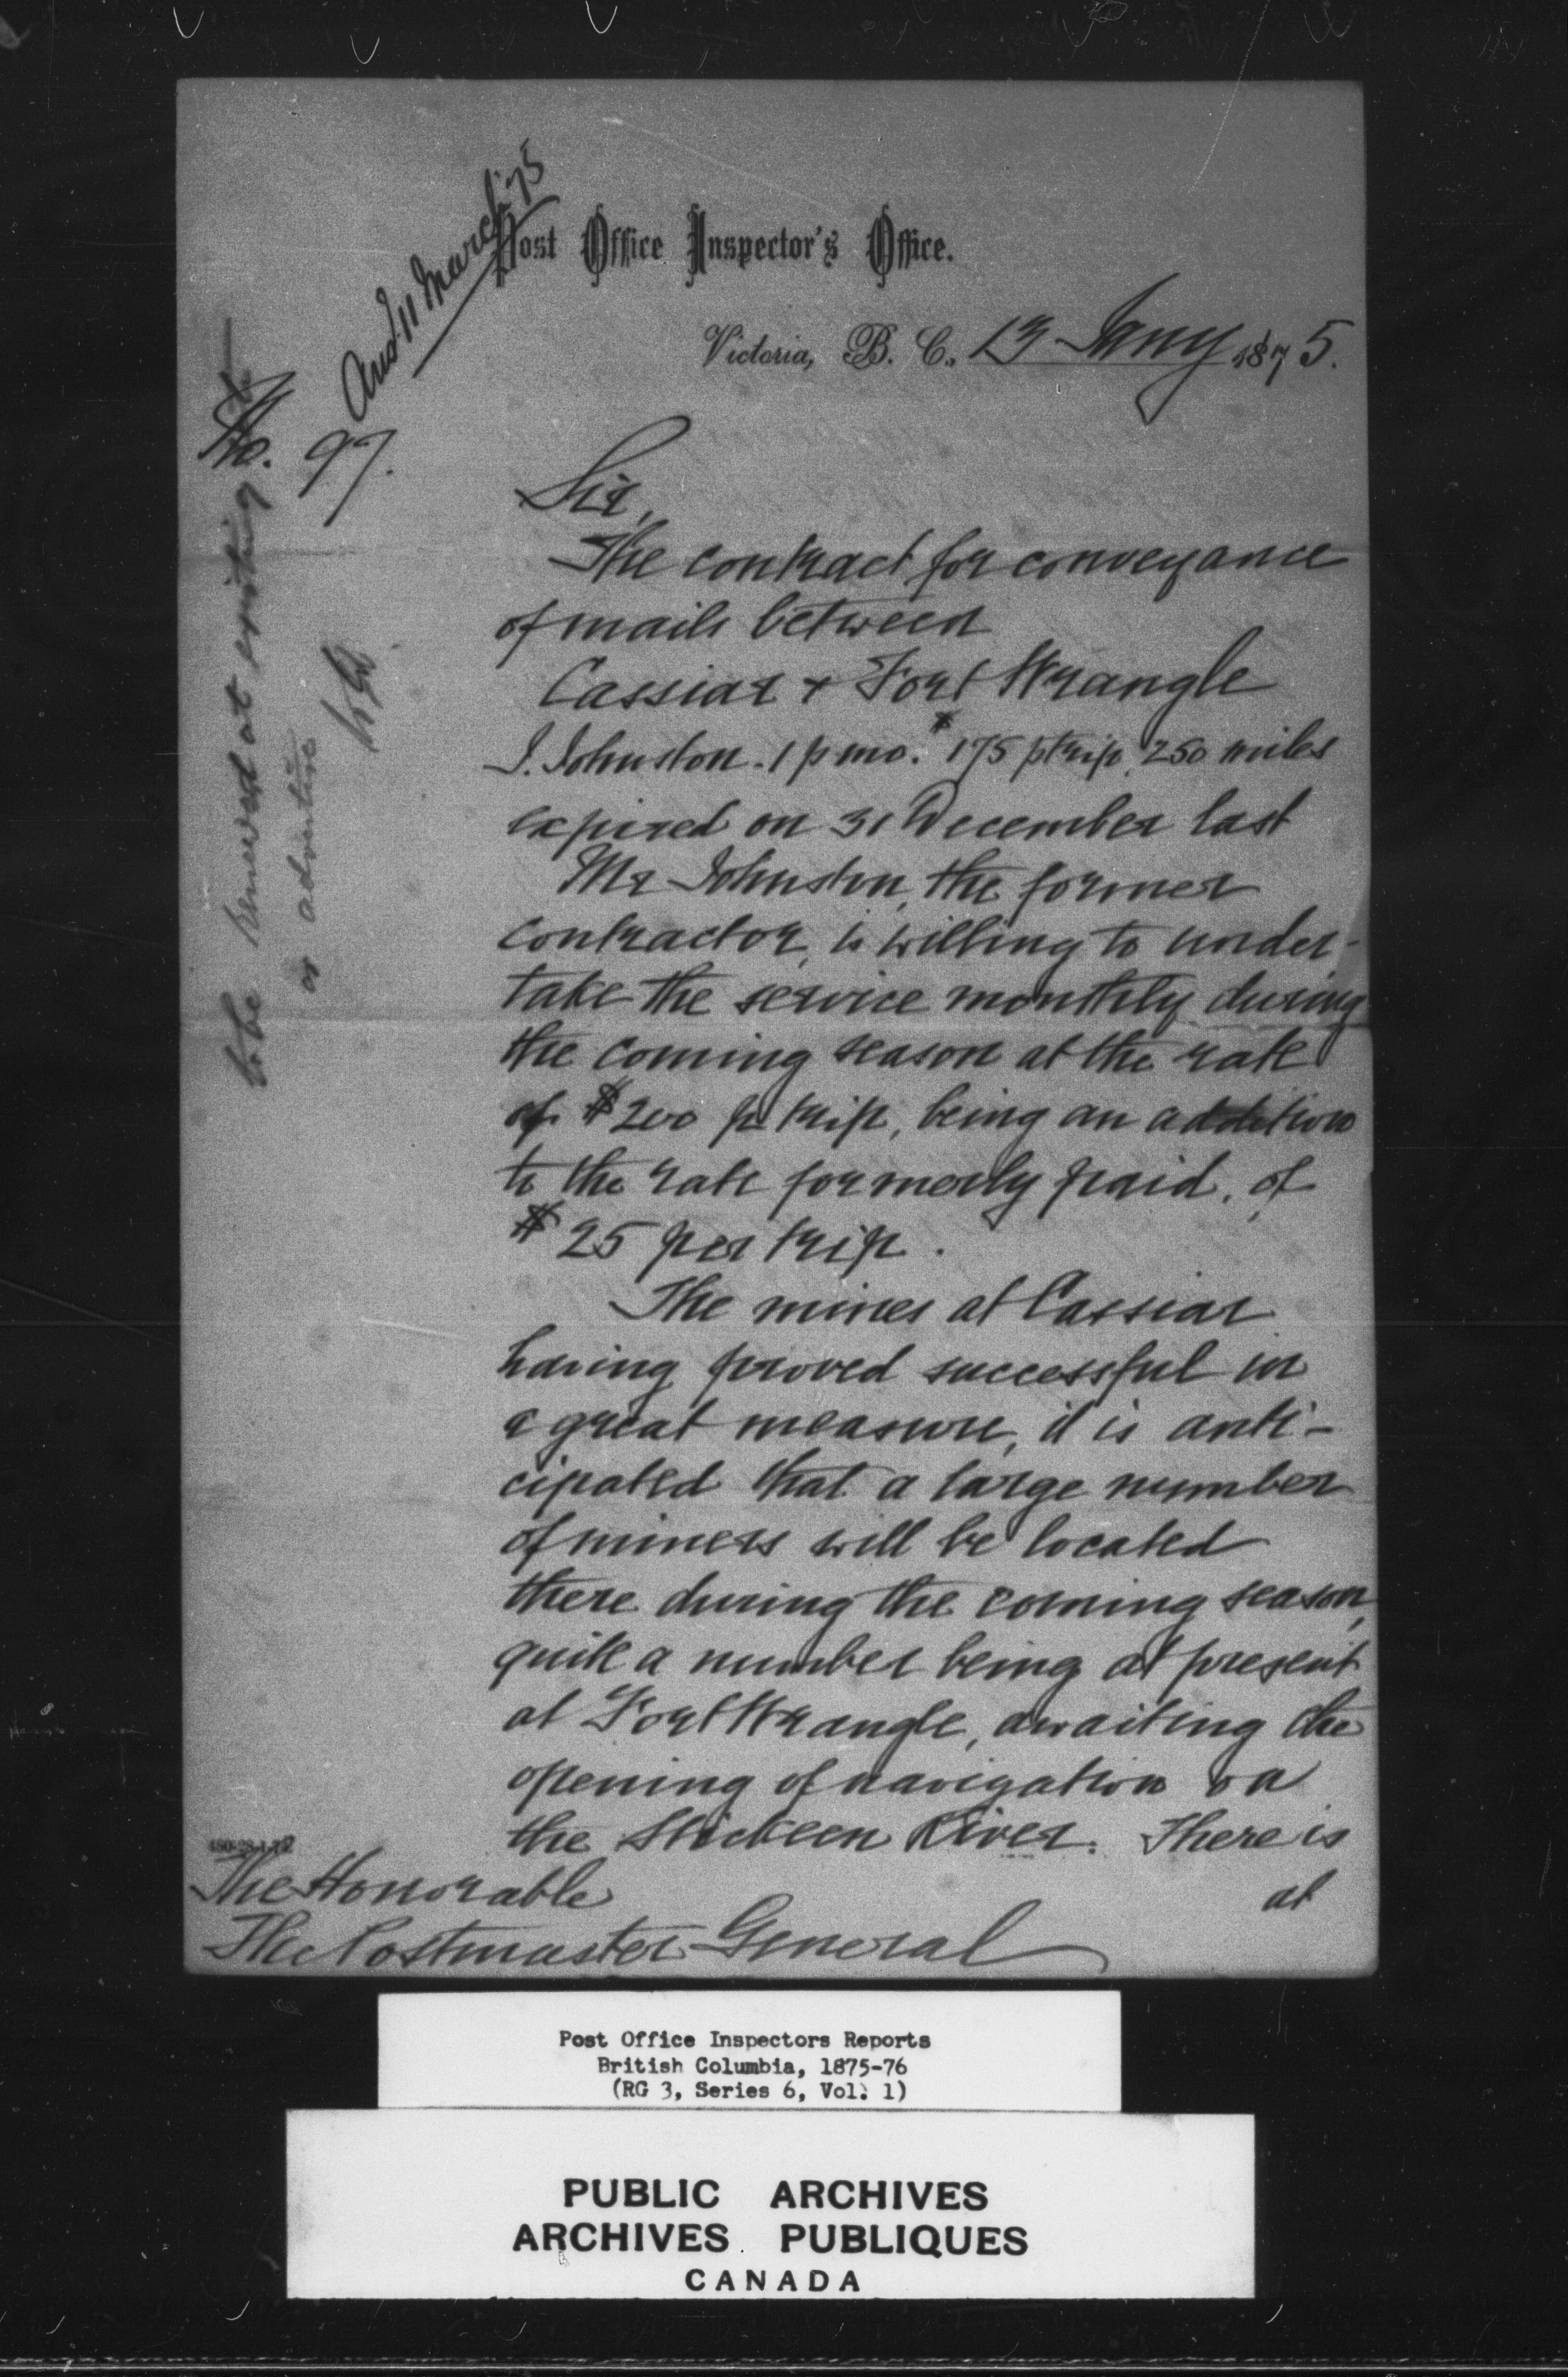 Ansd 11 March '75
Post Office Inspector's Office.
Victoria, B. C., 13 Jany 1875.
No. 97.
to be renewed at existing rate
or advertise
Sir,
The contract for conveyance
of mails between
Cassiar & Fort Wrangle
J. Johnston. 1 p mo. $175 p trip, 250 miles
expired on 31 December last
Mr Johnston, the former
contractor, is willing to under-
take the service monthly during
the coming season at the rate
of $200 pr trip, being an addition
to the rate formerly paid, of
$25 per trip.
The mines at Cassiar
having proved successful in
a great measure, it is anti-
cipated that a large number
of miners will be located
there during the coming season,
quite a number being at present
at Fort Wrangle, awaiting the
opening of navigation on
the Stickeen River. There is
at
The Honorable
The Postmaster General
Post Office Inspectors Reports
British Columbia, 1875-76
(RG 3, Series 6, Vol. 1)
PUBLIC ARCHIVES
ARCHIVES PUBLIQUES
CANADA